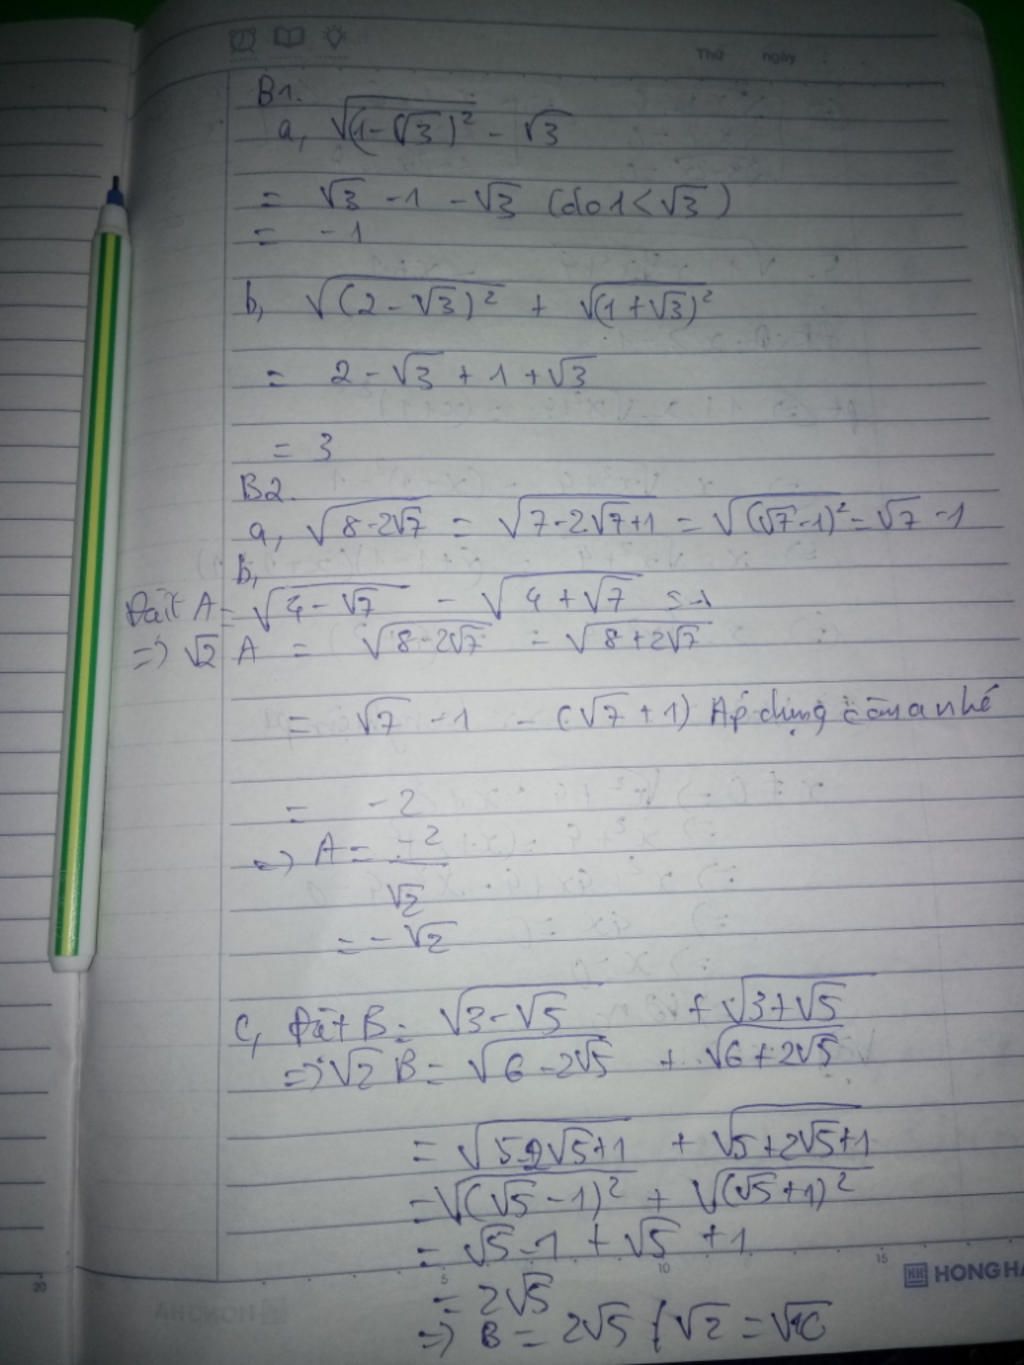 Thứ ngày
B1.
a, √(1-√3)² - √3
= √3 - 1 - √3 (do 1 < √3)
= -1
b, √(2-√3)² + √(1+√3)²
= 2 - √3 + 1 + √3
= 3
B2.
a, √8-2√7 = √7-2√7+1 = √(√7-1)² = √7 - 1
b,
Đặt A = √4-√7 - √4+√7
=> √2 A = √8-2√7 - √8+2√7
= √7 - 1 - (√7 + 1) Áp dụng câu a nhé
= -2
=> A = -2
√2
= -√2
c, Đặt B = √3-√5 + √3+√5
=> √2 B = √6-2√5 + √6+2√5
= √5-2√5+1 + √5+2√5+1
= √(√5-1)² + √(√5+1)²
= √5 - 1 + √5 + 1
= 2√5
=> B = 2√5 / √2 = √10
5 10 15
20
HONG HA